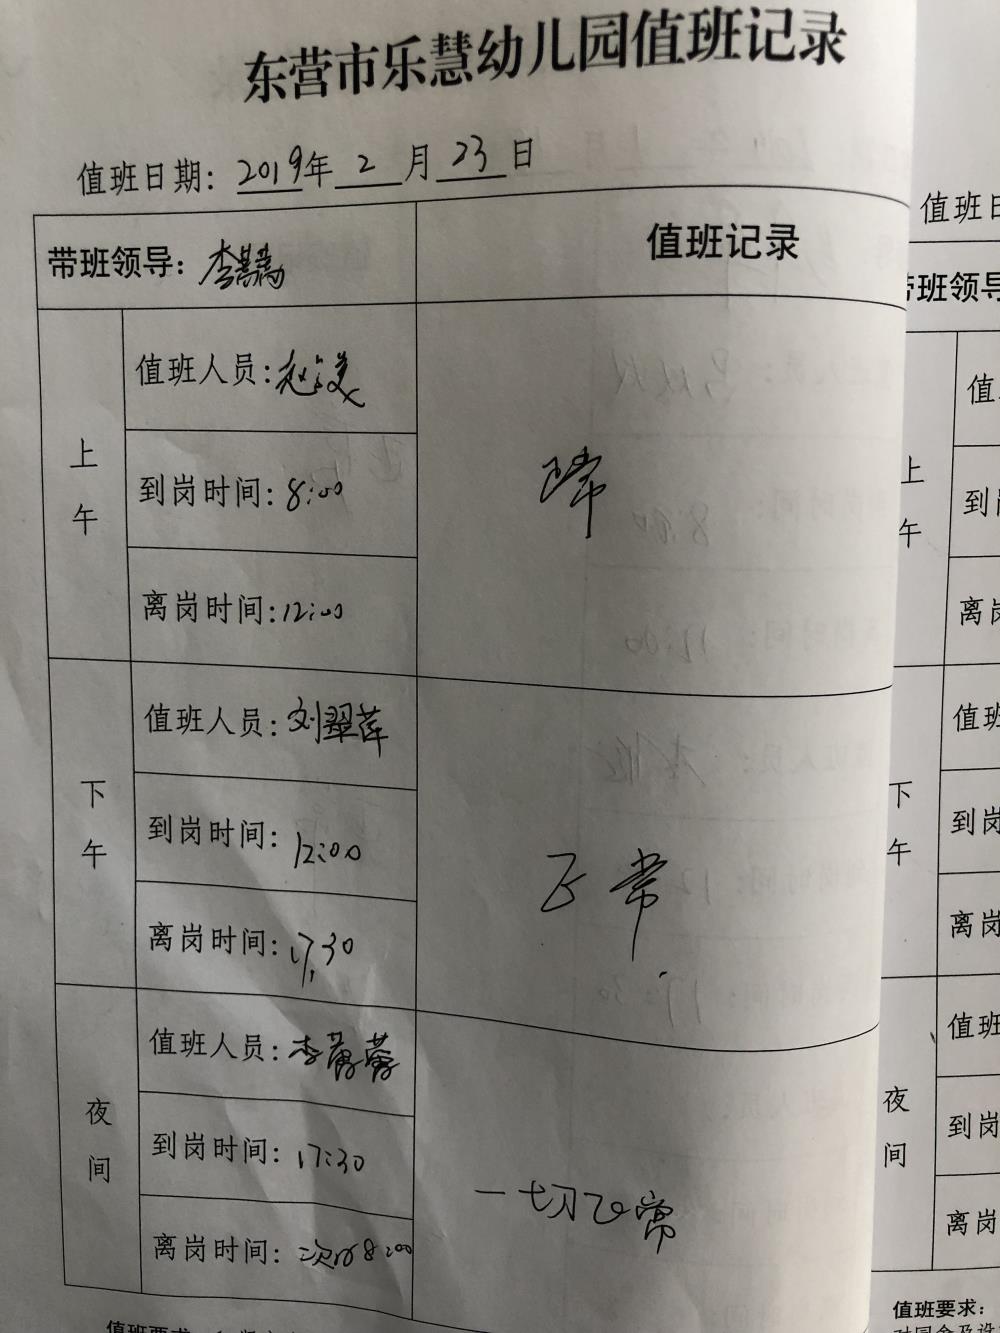 东营市乐慧幼儿园值班记录
值班日期: 2019年 2 月 23 日
带班领导:李
值班记录
上午
值班人员:赵美
到岗时间:8:00
离岗时间:12:00
正常
下午
值班人员:刘翠萍
到岗时间:12:00
离岗时间:17:30
正常
夜间
值班人员:李
到岗时间:17:30
离岗时间:次日8:00
一切正常
值班要求:
值班日
带班领导
上午
值
到岗
离岗
下午
值班
到岗
离岗
夜间
值班
到岗
离岗
值班要求: